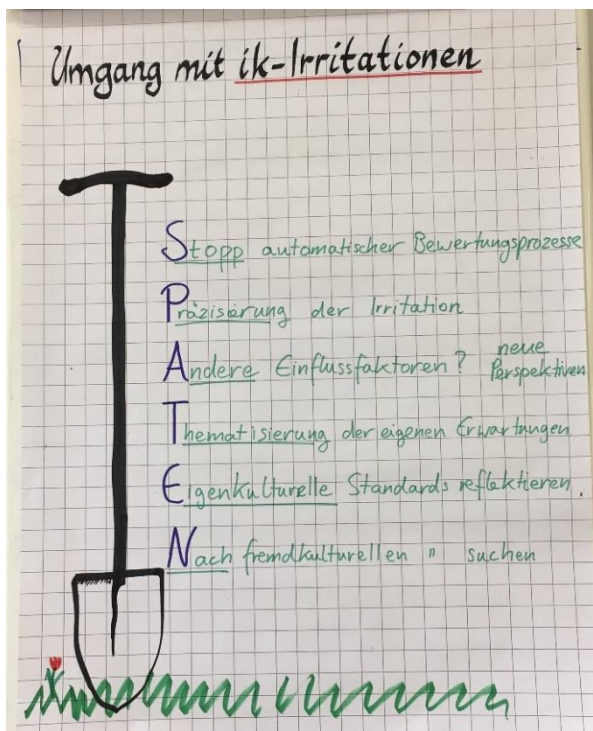 Umgang mit ik-Irritationen
Stopp automatischer Bewertungsprozesse
Präzisierung der Irritation
Andere Einflussfaktoren? neue Perspektiven
Thematisierung der eigenen Erwartungen
Eigenkulturelle Standards reflektieren.
Nach fremdkulturellen " suchen